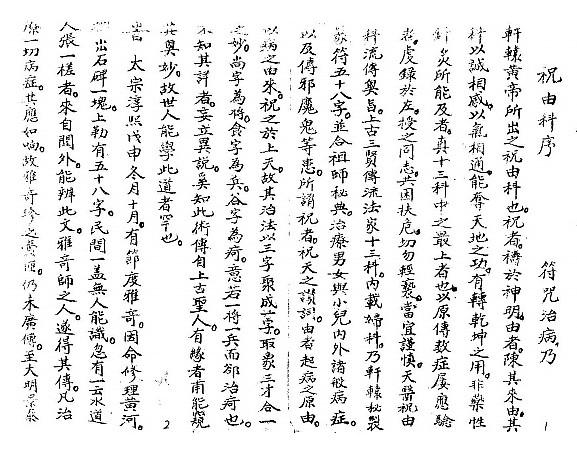 祝由科序　符咒治病乃
軒轅黃帝所出之祝由科也。祝者禱於神明。由者陳其來由。其
科以誠相感。以氣相通。能奪天地之功。有轉乾坤之用。非藥性
針灸所能及者。真十三科中之最上者也。以原傳數症屢應驗
者。虔錄於左。授之同志。共困扶危。切勿輕褻。當宜謹慎。天醫祝由
科流傳奧旨。上古三賢傳流法家十三科。內載婦科。乃軒轅秘製
篆符五十八字。並合祖師秘典。治療男女與小兒內外諸般病症。
以及傳邪魔鬼等患。所謂祝者。祝天之讚詞。由者起病之原由。
以病之由來。祝之於上天。故其治法以三字聚成一字。取象三才合一
之妙。尚字為將。食字為兵。各字為疴。意若一將一兵而部治疴也。
不知其詳者。妄立異說。奚知此術傳自上古聖人。有緣者甫能窺
其奧妙。故世人能學此道者罕也。
2
旹　太宗淳熙戊申冬月十月。有節度雅奇因命修理黃河。
出石碑一塊。上勒有五十八字。民間一蓋無人能識。忽有一云水道
人張一槎者。來自閩外。能辨此文。雅奇師之人。遂得其傳。凡治
療一切病症。其應如响。故雅奇珍之
仍未廣傳。至大明
1